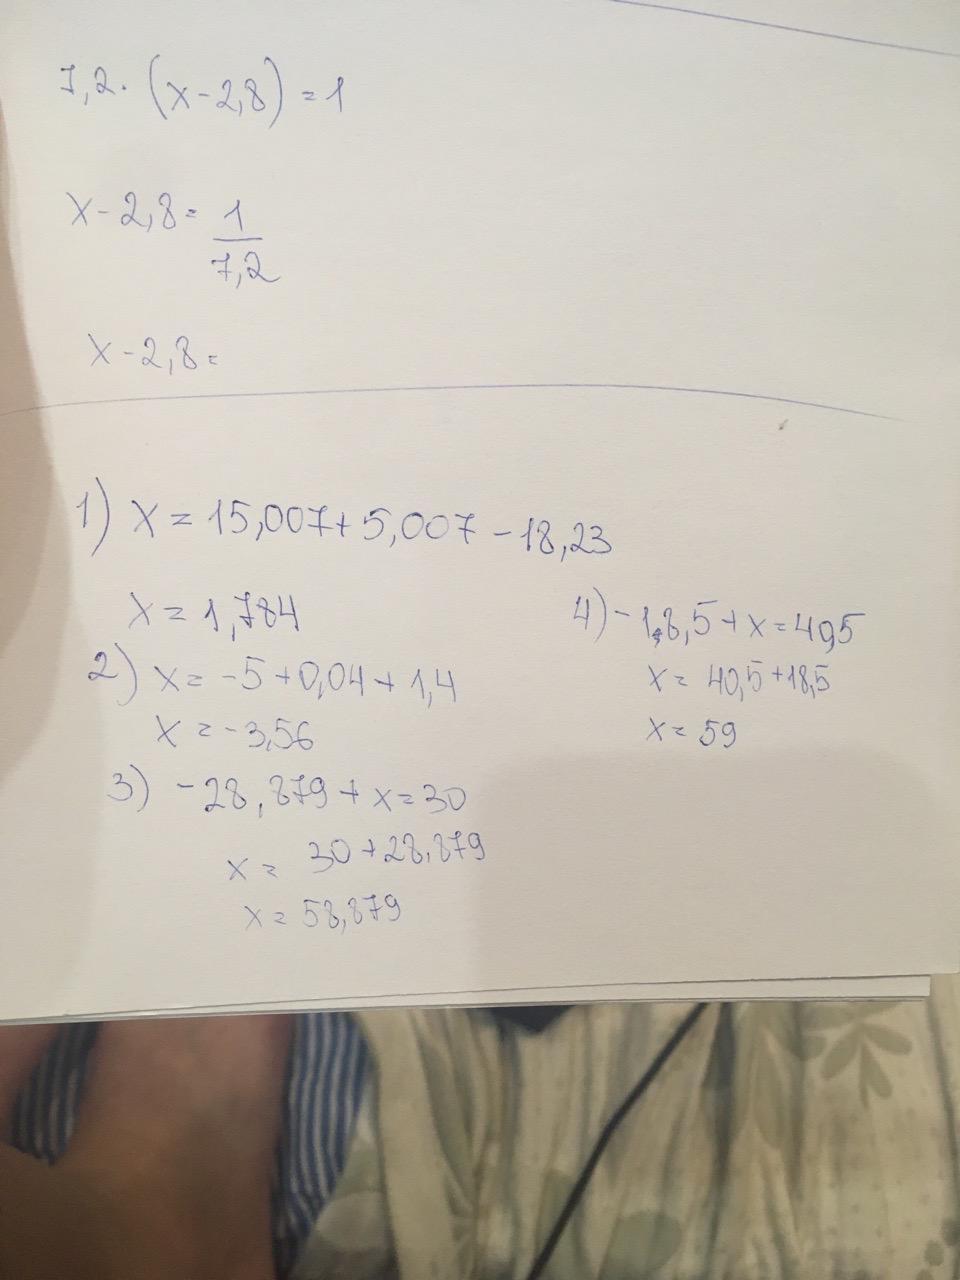 7,2 · (x - 2,8) = 1
x - 2,8 = 1/7,2
x - 2,8 =
1) x = 15,007 + 5,007 - 18,23
x = 1,784
2) x = -5 + 0,04 + 1,4
x = -3,56
3) -28,879 + x = 30
x = 30 + 28,879
x = 58,879
4) -18,5 + x = 40,5
x = 40,5 + 18,5
x = 59